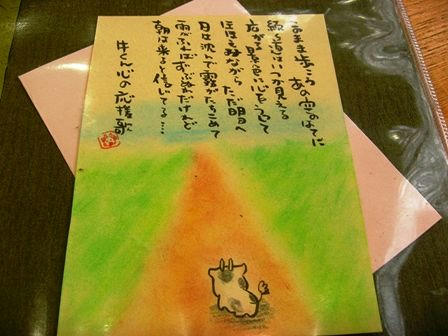 このまま歩こう あの空のはてに
続く道はいつか見える
広がる景色に心を写して
ほほえみながら ただ明日へ
日は沈んで霧がたちこめて
雨がふればずぶぬれだけれど
朝は来ると信じてる…
牛くん心の応援歌